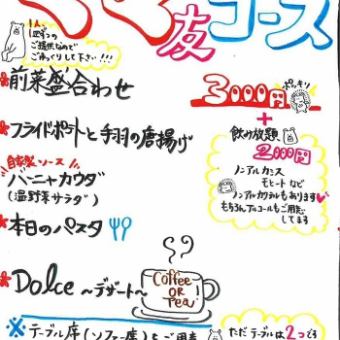 友コース
1人、1皿ずつの
ご提供なので
ごゆっくりして下さい!!!
*前菜盛合わせ
3000円 ポッキリ
+
*フライドポテトと手羽の唐揚げ
飲み放題
2000円
自家製ソース
バーニャカウダ
(温野菜サラダ)
ノンアルカシス
モヒートなど
ノンアルカクテルもあります♥
もちろんアルコールもご用意
してます
*本日のパスタ
*Dolce ~デザート~
Coffee
OR
Tea!
※テーブル席(ソファー席)もご用意
ただテーブルは2つです